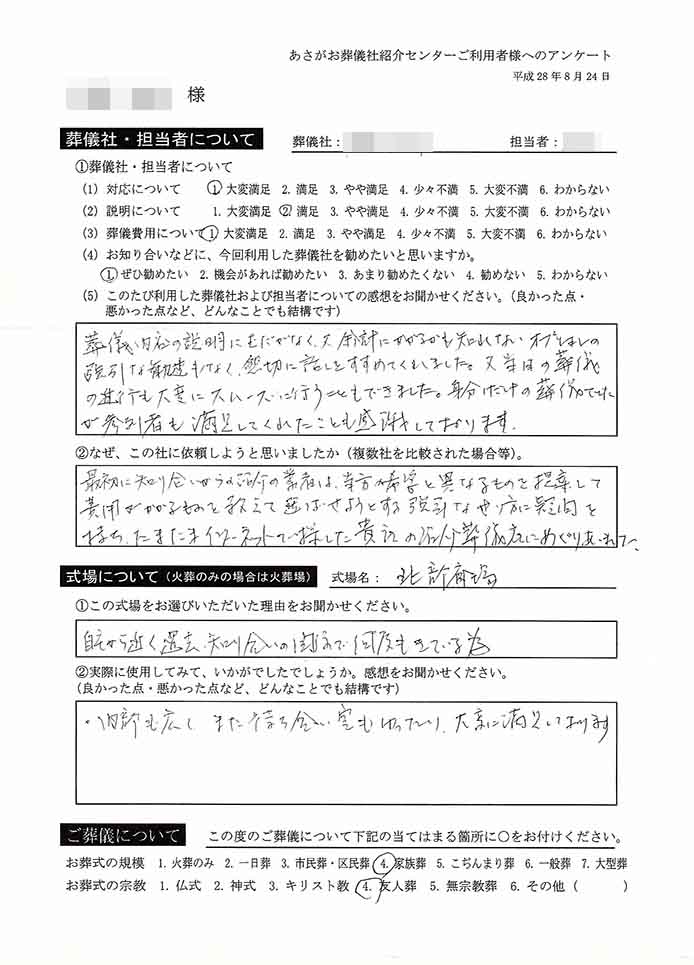 あさがお葬儀社紹介センターご利用者様へのアンケート
平成28年8月24日
様
葬儀社・担当者について 葬儀社: 担当者:
①葬儀社・担当者について
(1) 対応について 1. 大変満足 2. 満足 3. やや満足 4. 少々不満 5. 大変不満 6. わからない
(2) 説明について 1. 大変満足 2. 満足 3. やや満足 4. 少々不満 5. 大変不満 6. わからない
(3) 葬儀費用について 1. 大変満足 2. 満足 3. やや満足 4. 少々不満 5. 大変不満 6. わからない
(4) お知り合いなどに、今回利用した葬儀社を勧めたいと思いますか。
1. ぜひ勧めたい 2. 機会があれば勧めたい 3. あまり勧めたくない 4. 勧めない 5. わからない
(5) このたび利用した葬儀社および担当者についての感想をお聞かせください。(良かった点・
悪かった点など、どんなことでも結構です)
葬儀内容の説明にむだがなく、又余計にかかるかも知れないオプションの
強引な勧誘もなく、親切に話しをすすめてくれました。又当日の葬儀
の進行も大変にスムーズに行うこともできました。身内だけの葬儀でした
が参列者も満足してくれたことも感謝しております。
②なぜ、この社に依頼しようと思いましたか(複数社を比較された場合等)。
最初に知り合いからの紹介の業者は、当方の希望と異なるものを提案して
費用がかかるものを敢えて選ばせようとする強引なやり方に疑問を
持ち、たまたまインターネットで探した貴社の紹介葬儀店にめぐりあれて、
式場について(火葬のみの場合は火葬場) 式場名: 北部斎場
①この式場をお選びいただいた理由をお聞かせください。
自宅から近く過去、知り合いの関係で何度もきている為
②実際に使用してみて、いかがでしたでしょうか。感想をお聞かせください。
(良かった点・悪かった点など、どんなことでも結構です)
・内部も広く また待ち合い室もゆったり、大変に満足しております
ご葬儀について この度のご葬儀について下記の当てはまる箇所に○をお付けください。
お葬式の規模 1. 火葬のみ 2. 一日葬 3. 市民葬・区民葬 4. 家族葬 5. こぢんまり葬 6. 一般葬 7. 大型葬
お葬式の宗教 1. 仏式 2. 神式 3. キリスト教 4. 友人葬 5. 無宗教葬 6. その他( )